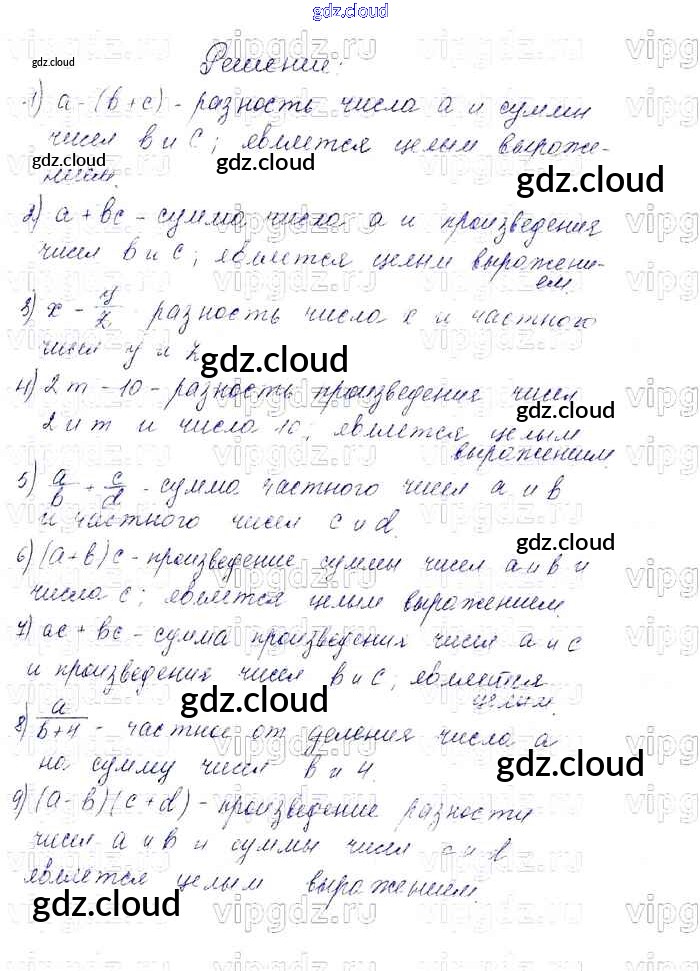 gdz.cloud
Решение:
1) a - (b + c) - разность числа a и суммы
чисел b и c; является целым выраже-
нием.
2) a + bc - сумма числа a и произведения
чисел b и c; является целым выражени-
ем.
3) x - y/z разность числа x и частного
чисел y и z
4) 2m - 10 - разность произведения чисел
2 и m и числа 10; является целым
выражением.
5) a/b + c/d - сумма частного чисел a и b
и частного чисел c и d.
6) (a + b) c - произведение суммы чисел a и b и
числа c; является целым выражением.
7) ac + bc - сумма произведения чисел a и c
и произведения чисел b и c; является
целым.
8) a/b+4 - частное от деления числа a
на сумму чисел b и 4.
9) (a - b)(c + d) - произведение разности
чисел a и b и суммы чисел c и d
является целым выражением.
gdz.cloud
gdz.cloud
gdz.cloud
gdz.cloud
gdz.cloud
gdz.cloud
gdz.cloud
gdz.cloud
gdz.cloud
gdz.cloud
gdz.cloud
vipgdz.ru